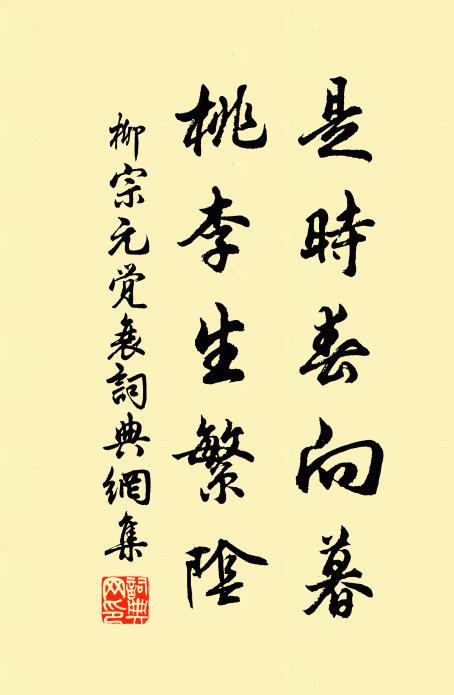 是時春向暮
桃李生繁陰
柳宗元覚衰詞典網集
詞典网印